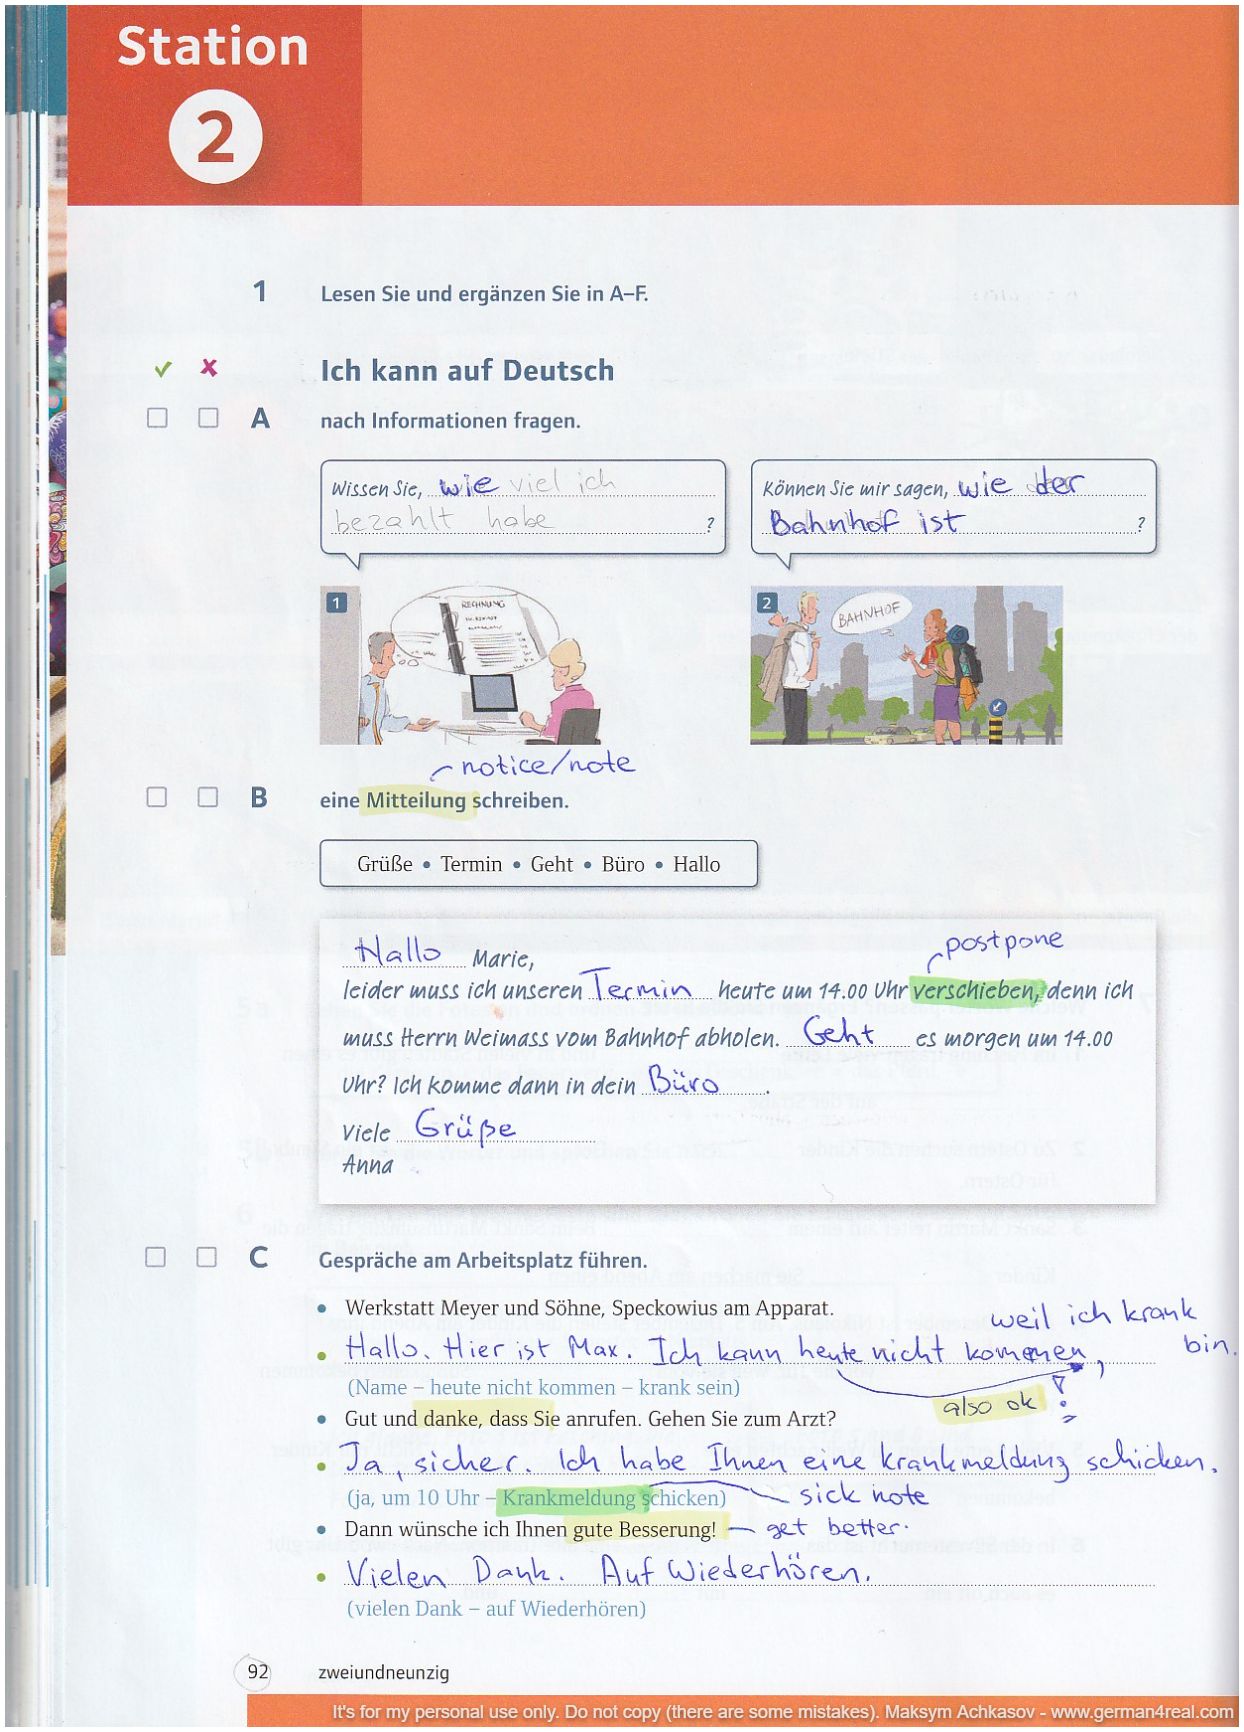 Station
2
1 Lesen Sie und ergänzen Sie in A–F.
✓ ✗ Ich kann auf Deutsch
A nach Informationen fragen.
Wissen Sie, wie viel ich
bezahlt habe ?
Können Sie mir sagen, wie der
Bahnhof ist ?
1
RECHNUNG
2
BAHNHOF
notice/note
B eine Mitteilung schreiben.
Grüße • Termin • Geht • Büro • Hallo
postpone
Hallo Marie,
leider muss ich unseren Termin heute um 14.00 Uhr verschieben, denn ich
muss Herrn Weimass vom Bahnhof abholen. Geht es morgen um 14.00
Uhr? Ich komme dann in dein Büro.
Viele Grüße
Anna
C Gespräche am Arbeitsplatz führen.
• Werkstatt Meyer und Söhne, Speckowius am Apparat.
weil ich krank
• Hallo. Hier ist Max. Ich kann heute nicht kommen, bin.
(Name – heute nicht kommen – krank sein)
also ok !
• Gut und danke, dass Sie anrufen. Gehen Sie zum Arzt?
• Ja, sicher. Ich habe Ihnen eine krankmeldung schicken.
(ja, um 10 Uhr – Krankmeldung schicken) sick note
• Dann wünsche ich Ihnen gute Besserung! – get better.
• Vielen Dank. Auf Wiederhören.
(vielen Dank – auf Wiederhören)
92 zweiundneunzig
It's for my personal use only. Do not copy (there are some mistakes). Maksym Achkasov - www.german4real.com